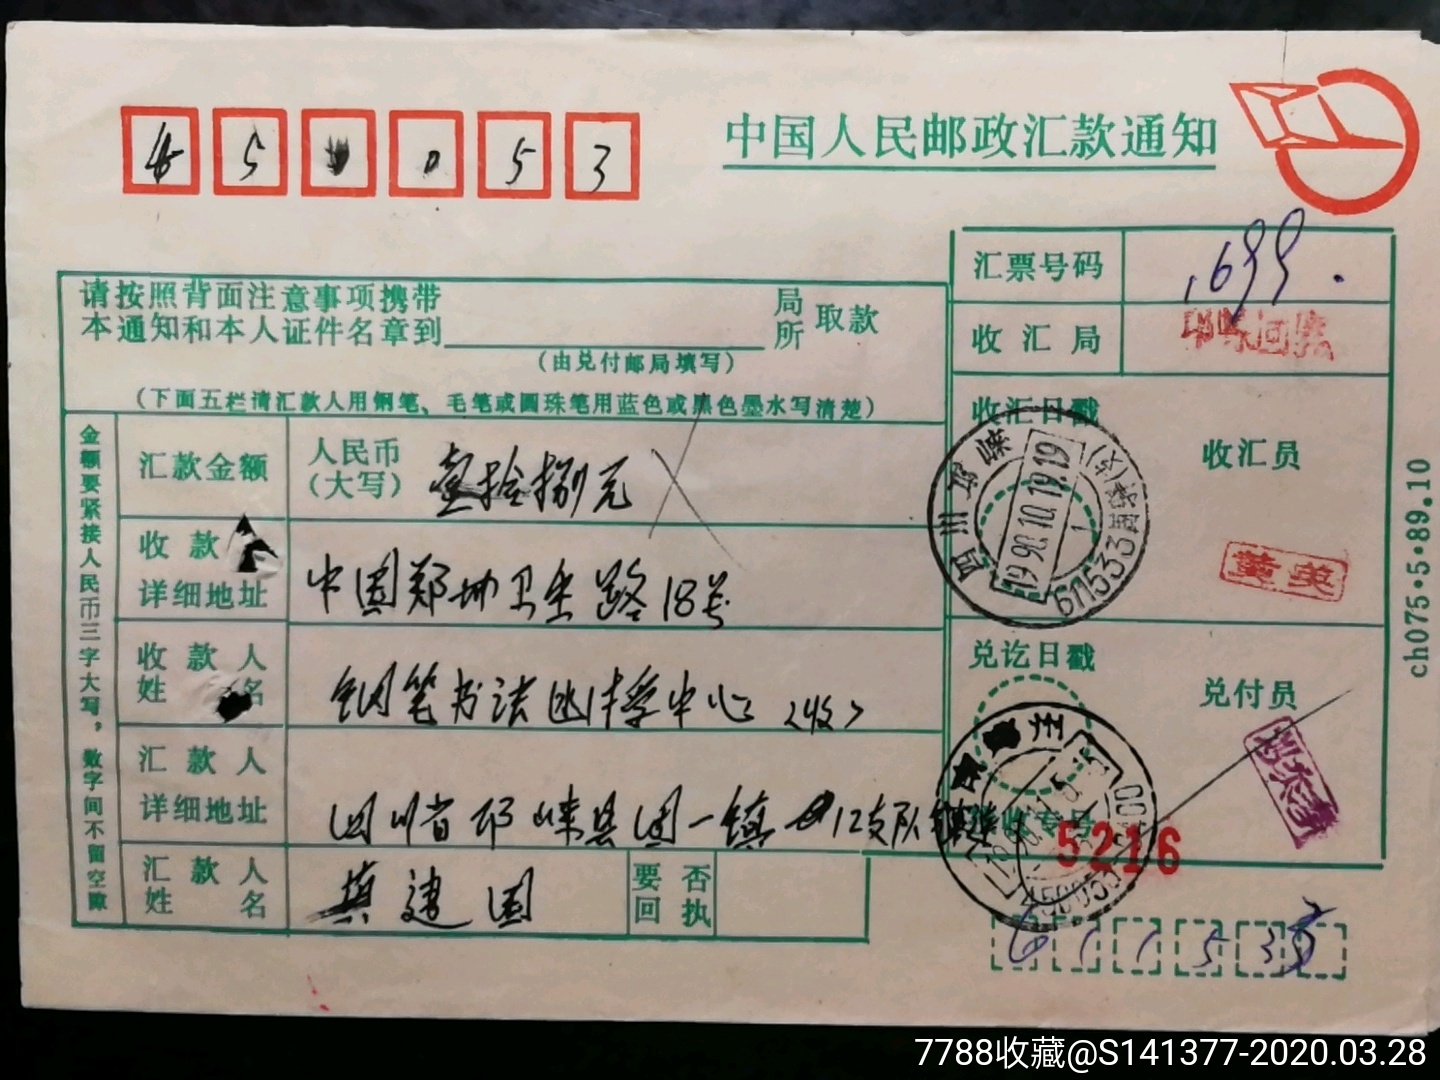 450053
中国人民邮政汇款通知
请按照背面注意事项携带
本通知和本人证件名章到 局所 取款
(由兑付邮局填写)
(下面五栏请汇款人用钢笔、毛笔或圆珠笔用蓝色或黑色墨水写清楚)
金额要紧接人民币三字大写，数字间不留空隙
汇款金额 人民币(大写) 壹拾捌元
收款
详细地址 中国郑州卫生路18号
收款人
姓名 钢笔书法函授中心 (收)
汇款人
详细地址 四川省邛崃县固一镇 12支队
汇款人
姓名 建国
要否
回执
汇票号码 1699.
收汇局
收汇日戳
收汇员
四川邛崃
1990.10.19.19
611533
黄英
兑讫日戳
兑付员
5216
61153
ch075·5·89.10
7788收藏@S141377-2020.03.28